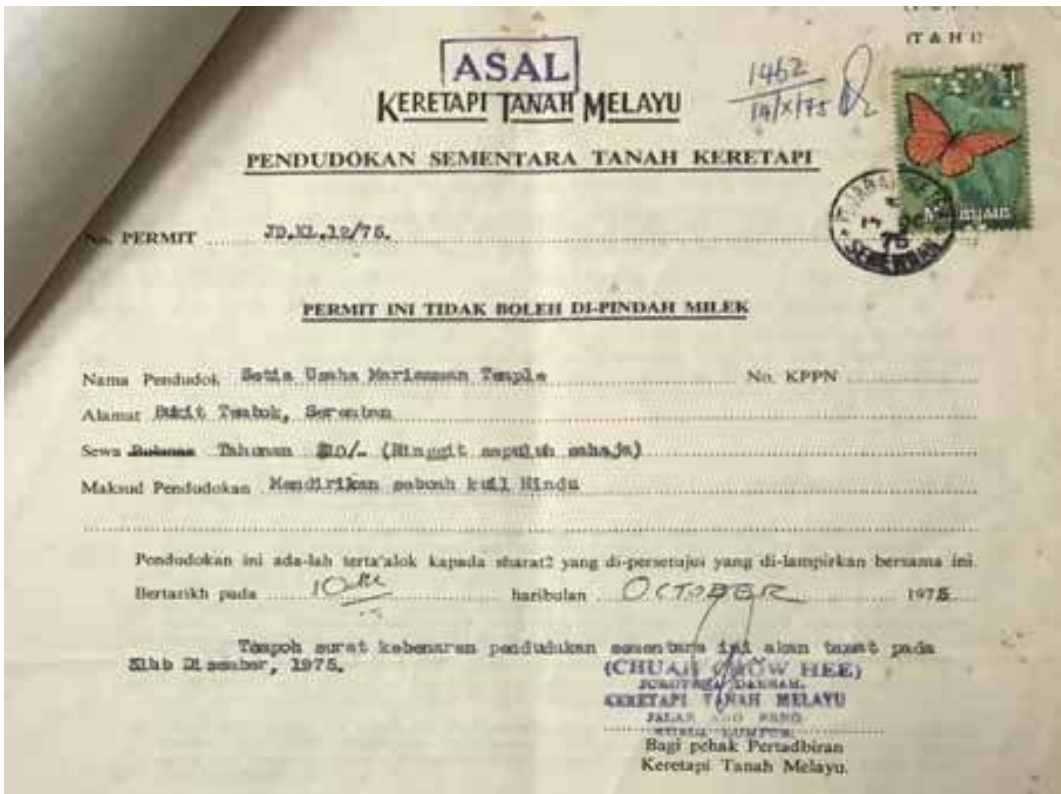 (T & H U
ASAL
KERETAPI TANAH MELAYU
1462
14/X/75
PENDUDOKAN SEMENTARA TANAH KERETAPI
No. PERMIT JD.KL.12/75.
PERMIT INI TIDAK BOLEH DI-PINDAH MILEK
Nama Pendudok Setia Usaha Mariamman Temple No. KPPN
Alamat Bukit Tembok, Seremban
Sewa Bulanan Tahunan $10/- (Ringgit sapuluh sahaja)
Maksud Pendudokan Mendirikan sebuah kuil Hindu
Pendudokan ini ada-lah terta'alok kapada sharat2 yang di-persetujui yang di-lampirkan bersama ini.
Bertarikh pada 10th haribulan OCTOBER 1975
Tempoh surat kebenaran pendudukan sementara ini akan tamat pada
31hb Disember, 1975.
(CHUAH CHOW HEE)
JURUTERA DAERAH,
KERETAPI TANAH MELAYU
JALAN
KUALA LUMPUR
Bagi pehak Pertadbiran
Keretapi Tanah Melayu.